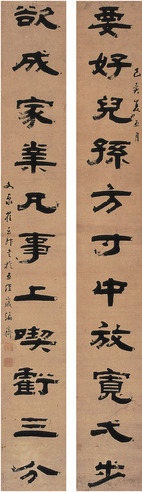 己亥夏五月
要好兒孫方寸中放寬弌步
欲成家業凡事上喫虧三分